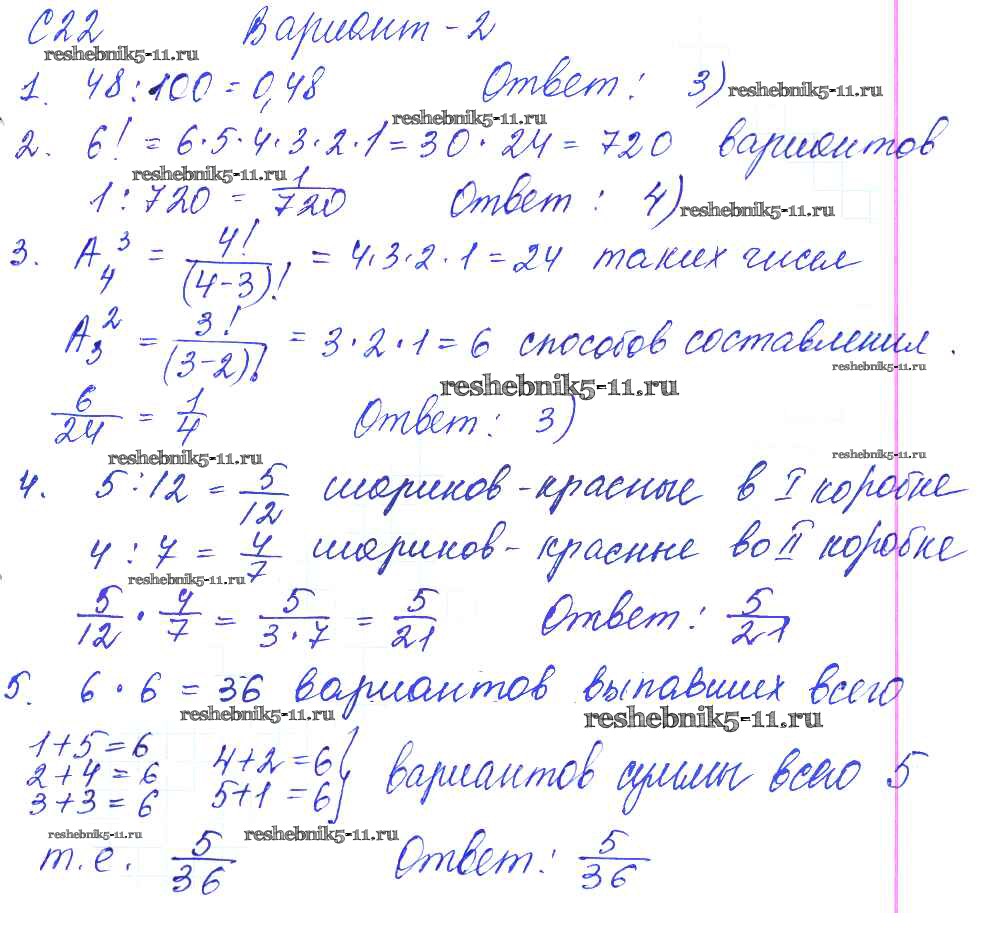 С22 Вариант - 2
reshebnik5-11.ru
1. 48 : 100 = 0,48 Ответ: 3) reshebnik5-11.ru
reshebnik5-11.ru
2. 6! = 6·5·4·3·2·1 = 30·24 = 720 вариантов
reshebnik5-11.ru
1 : 720 = 1/720 Ответ: 4) reshebnik5-11.ru
3. A₄³ = 4!/(4-3)! = 4·3·2·1 = 24 таких чисел
A₃² = 3!/(3-2)! = 3·2·1 = 6 способов составления.
reshebnik5-11.ru
reshebnik5-11.ru
6/24 = 1/4 Ответ: 3)
reshebnik5-11.ru reshebnik5-11.ru
4. 5 : 12 = 5/12 шариков - красные в I коробке
4 : 7 = 4/7 шариков - красные во II коробке
reshebnik5-11.ru
5/12 · 4/7 = 5/(3·7) = 5/21 Ответ: 5/21
5. 6 · 6 = 36 вариантов выпавших всего
reshebnik5-11.ru reshebnik5-11.ru
1+5=6
2+4=6 4+2=6 } вариантов суммы всего 5
3+3=6 5+1=6
reshebnik5-11.ru reshebnik5-11.ru
т.е. 5/36 Ответ: 5/36